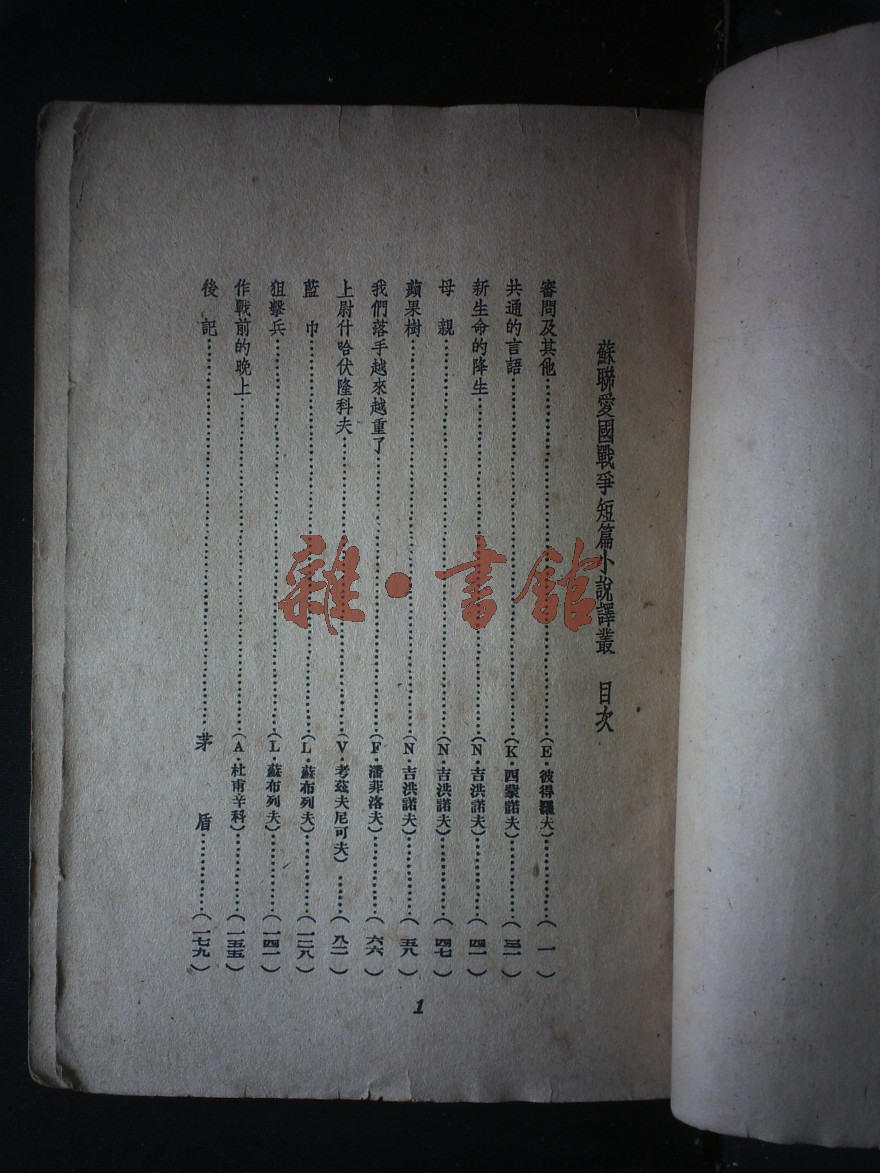 蘇聯愛國戰爭短篇小說譯叢　目次
審問及其他………(E・彼得羅夫)………(一)
共通的言語………(K・西蒙諾夫)………(三一)
新生命的降生………(N・吉洪諾夫)………(四一)
母親………(N・吉洪諾夫)………(四七)
蘋果樹………(N・吉洪諾夫)………(五八)
我們落手越來越重了………(F・潘菲洛夫)………(六六)
上尉什哈伏隆科夫………(V・考茲夫尼可夫)………(八二)
藍巾………(L・蘇布列夫)………(一二八)
狙擊兵………(L・蘇布列夫)………(一四一)
作戰前的晚上………(A・杜甫辛科)………(一五五)
後記………茅盾………(一七九)
1
雜・書館